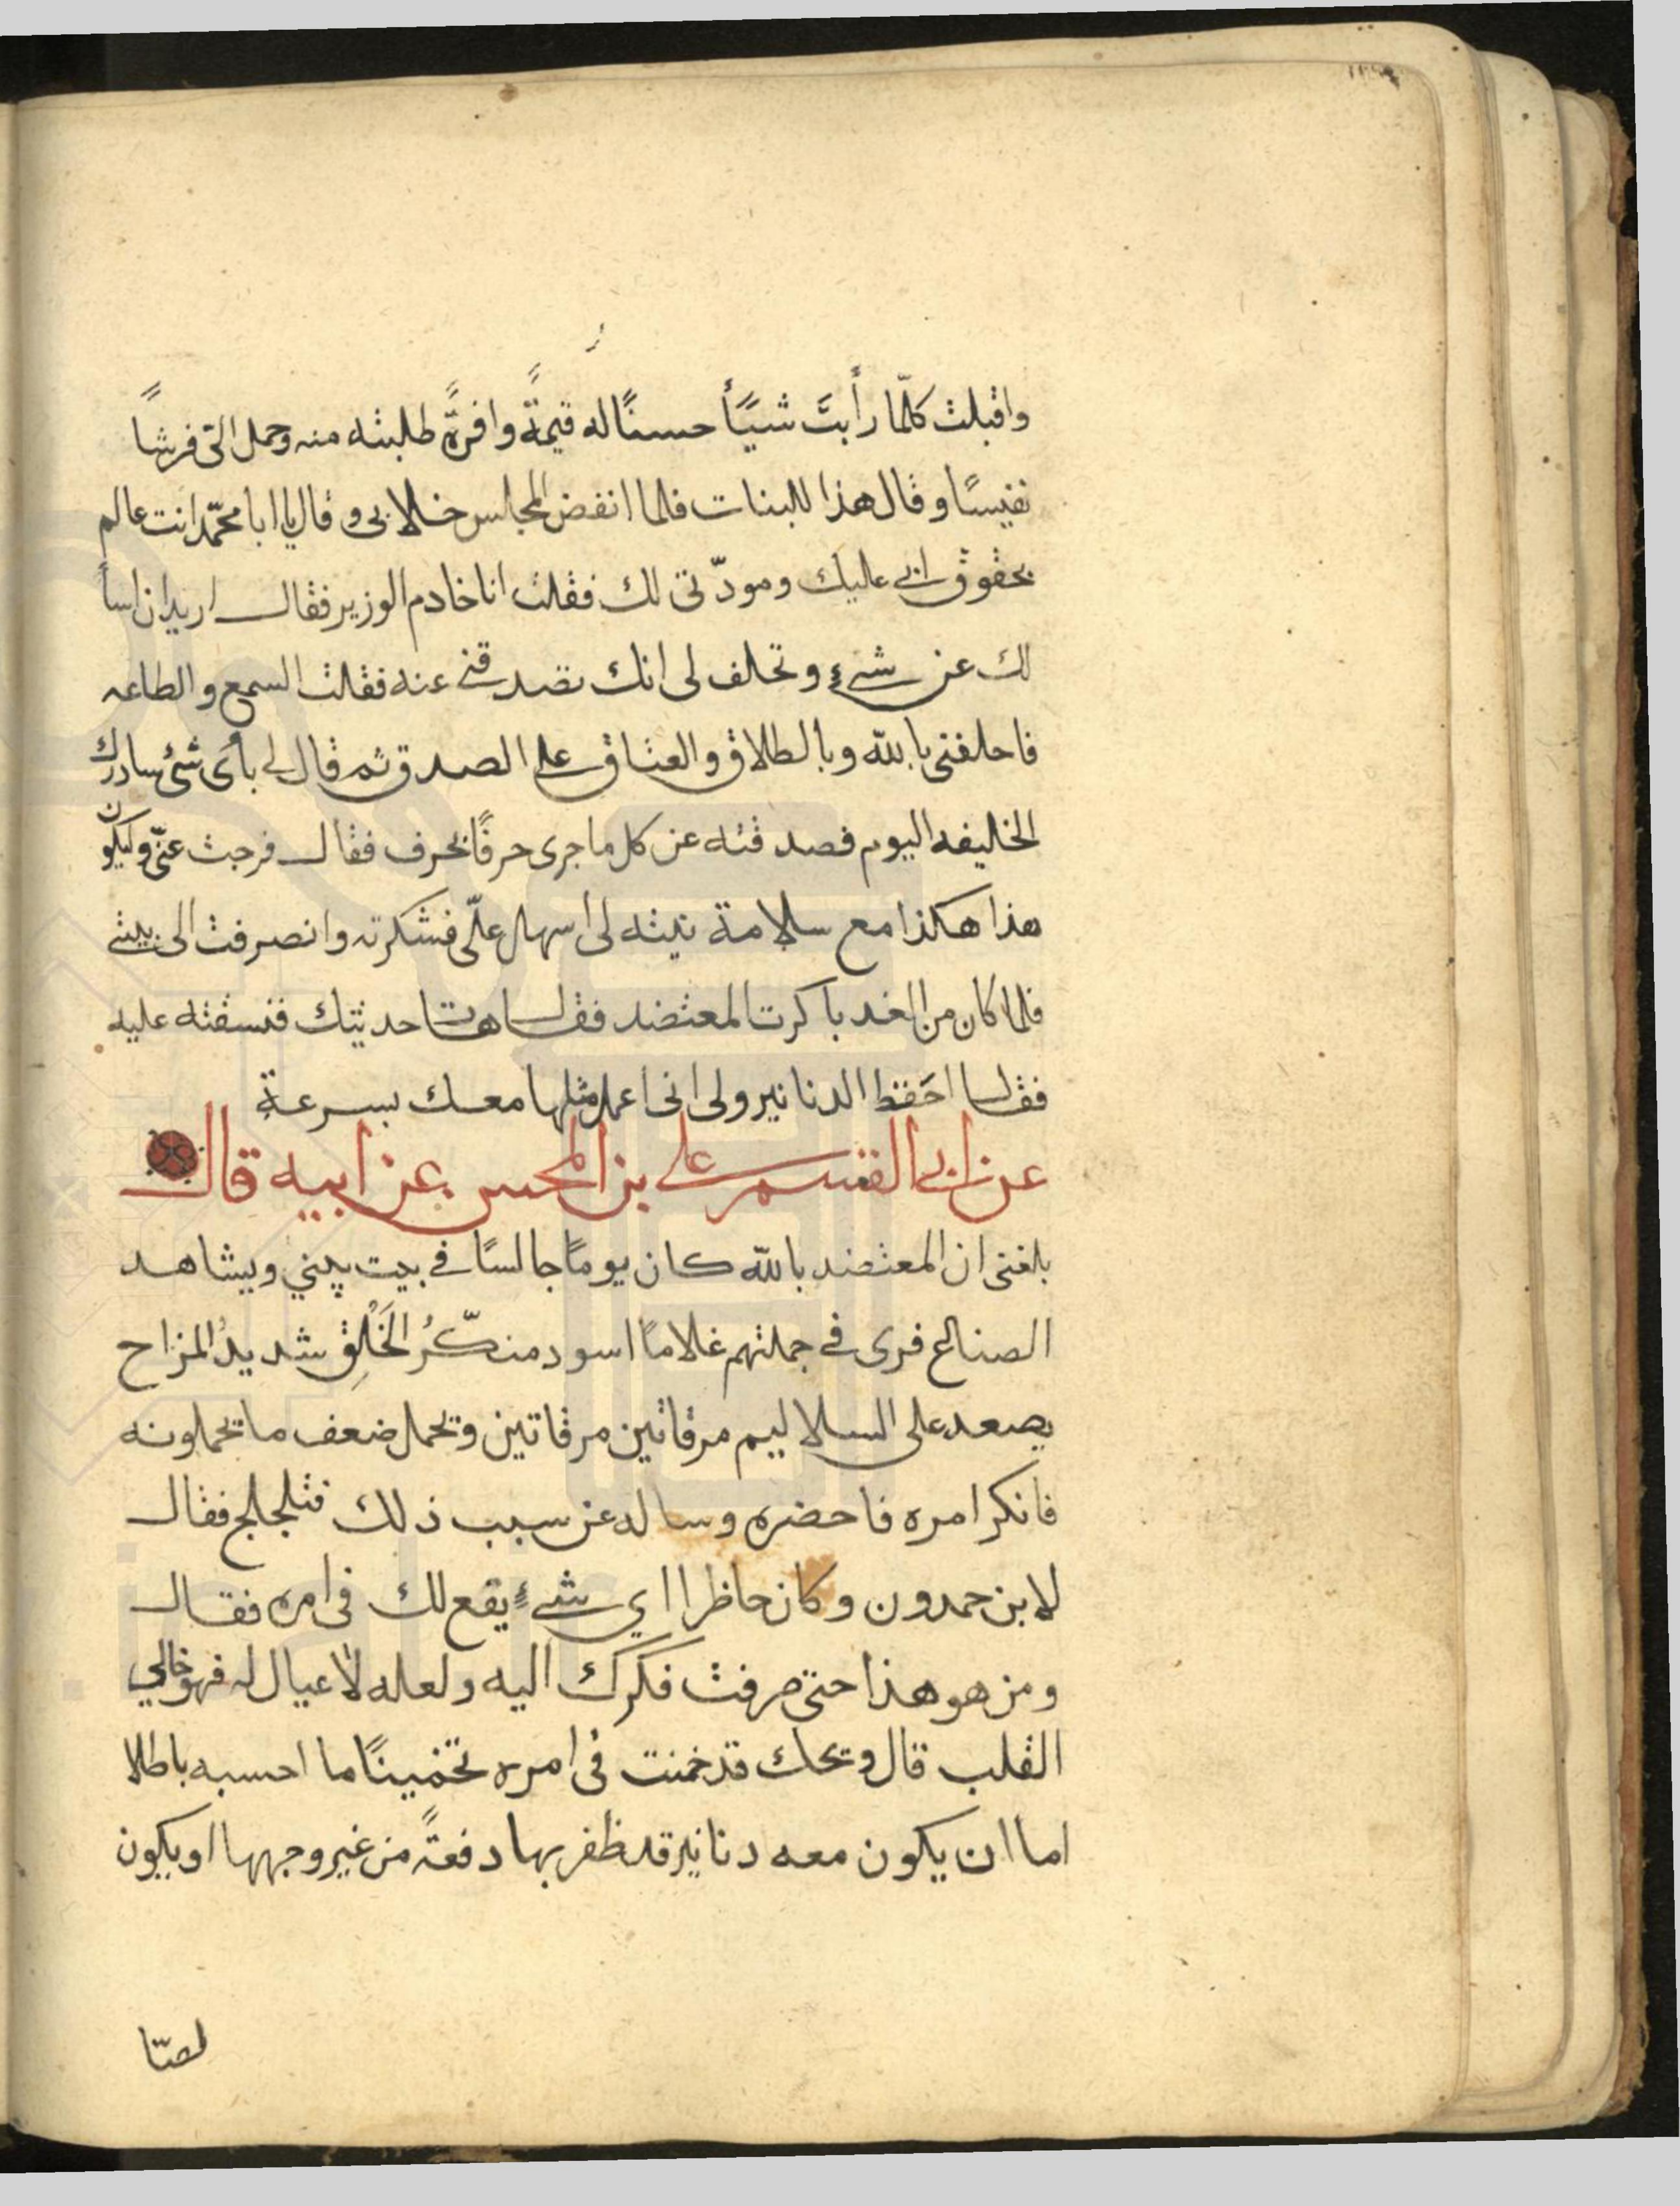 واقبلت كلّما رأيت شيًأ حسنًا له قيمةً وافرةً طلبته منه وحمل الىّ فرشًا
نفيسًا وقال هذا للبنات فلما انفض المجلس خلا بى وقال يا ابا محمّد انت عالم
بحقوق ابي عليك ومودّتى لك فقلت انا خادم الوزير فقال اريد ان اسأ
لك عن شيءٍ وتحلف لى انك تصدقنى عنه فقلت السمع والطاعه
فاحلفنى بالله وبالطلاق والعتاق على الصدق ثم قال لى بأى شئ سادرك
الخليفه اليوم فصدقته عن كل ما جرى حرفًا بحرف فقال فرجت عنّى وليكون
هذا هكذا مع سلامة نيته لى اسهل علّى فشكرته وانصرفت الى بيتى
فلما كان من الغد باكرت المعتضد فقال هات حديثك فنسقته عليه
فقال احَفظ الدنانير ولى انى اعمل مثلها معك بسرعةٍ
عن ابى القسم على بن المحسن عن ابيه قال
بلغنى ان المعتضد بالله كان يومًا جالسًا فى بيت يبني ويشاهد
الصناع فرى فى جملتهم غلامًا اسود منكّرُ الخَلْقِ شديدُ المزاح
يصعد على السلاليم مرقاتين مرقاتين ويحمل ضعف ما يحملونه
فانكر امره فاحضره وساله عن سبب ذلك فتلجلج فقال
لابن حمدون وكان حاظرا اي شيءٍ يقع لك فى امره فقال
ومن هو هذا حتى صرفت فكرك اليه ولعله لا عيال له فهو خالي
القلب قال ويحك قد خمنت فى امره تخمينًا ما احسبه باطلا
اما ان يكون معه دنانير قد ظفر بها دفعةً من غير وجهها او يكون
لصّا